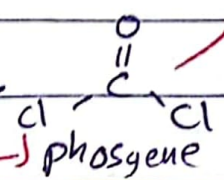 O
C
Cl Cl
phosgene